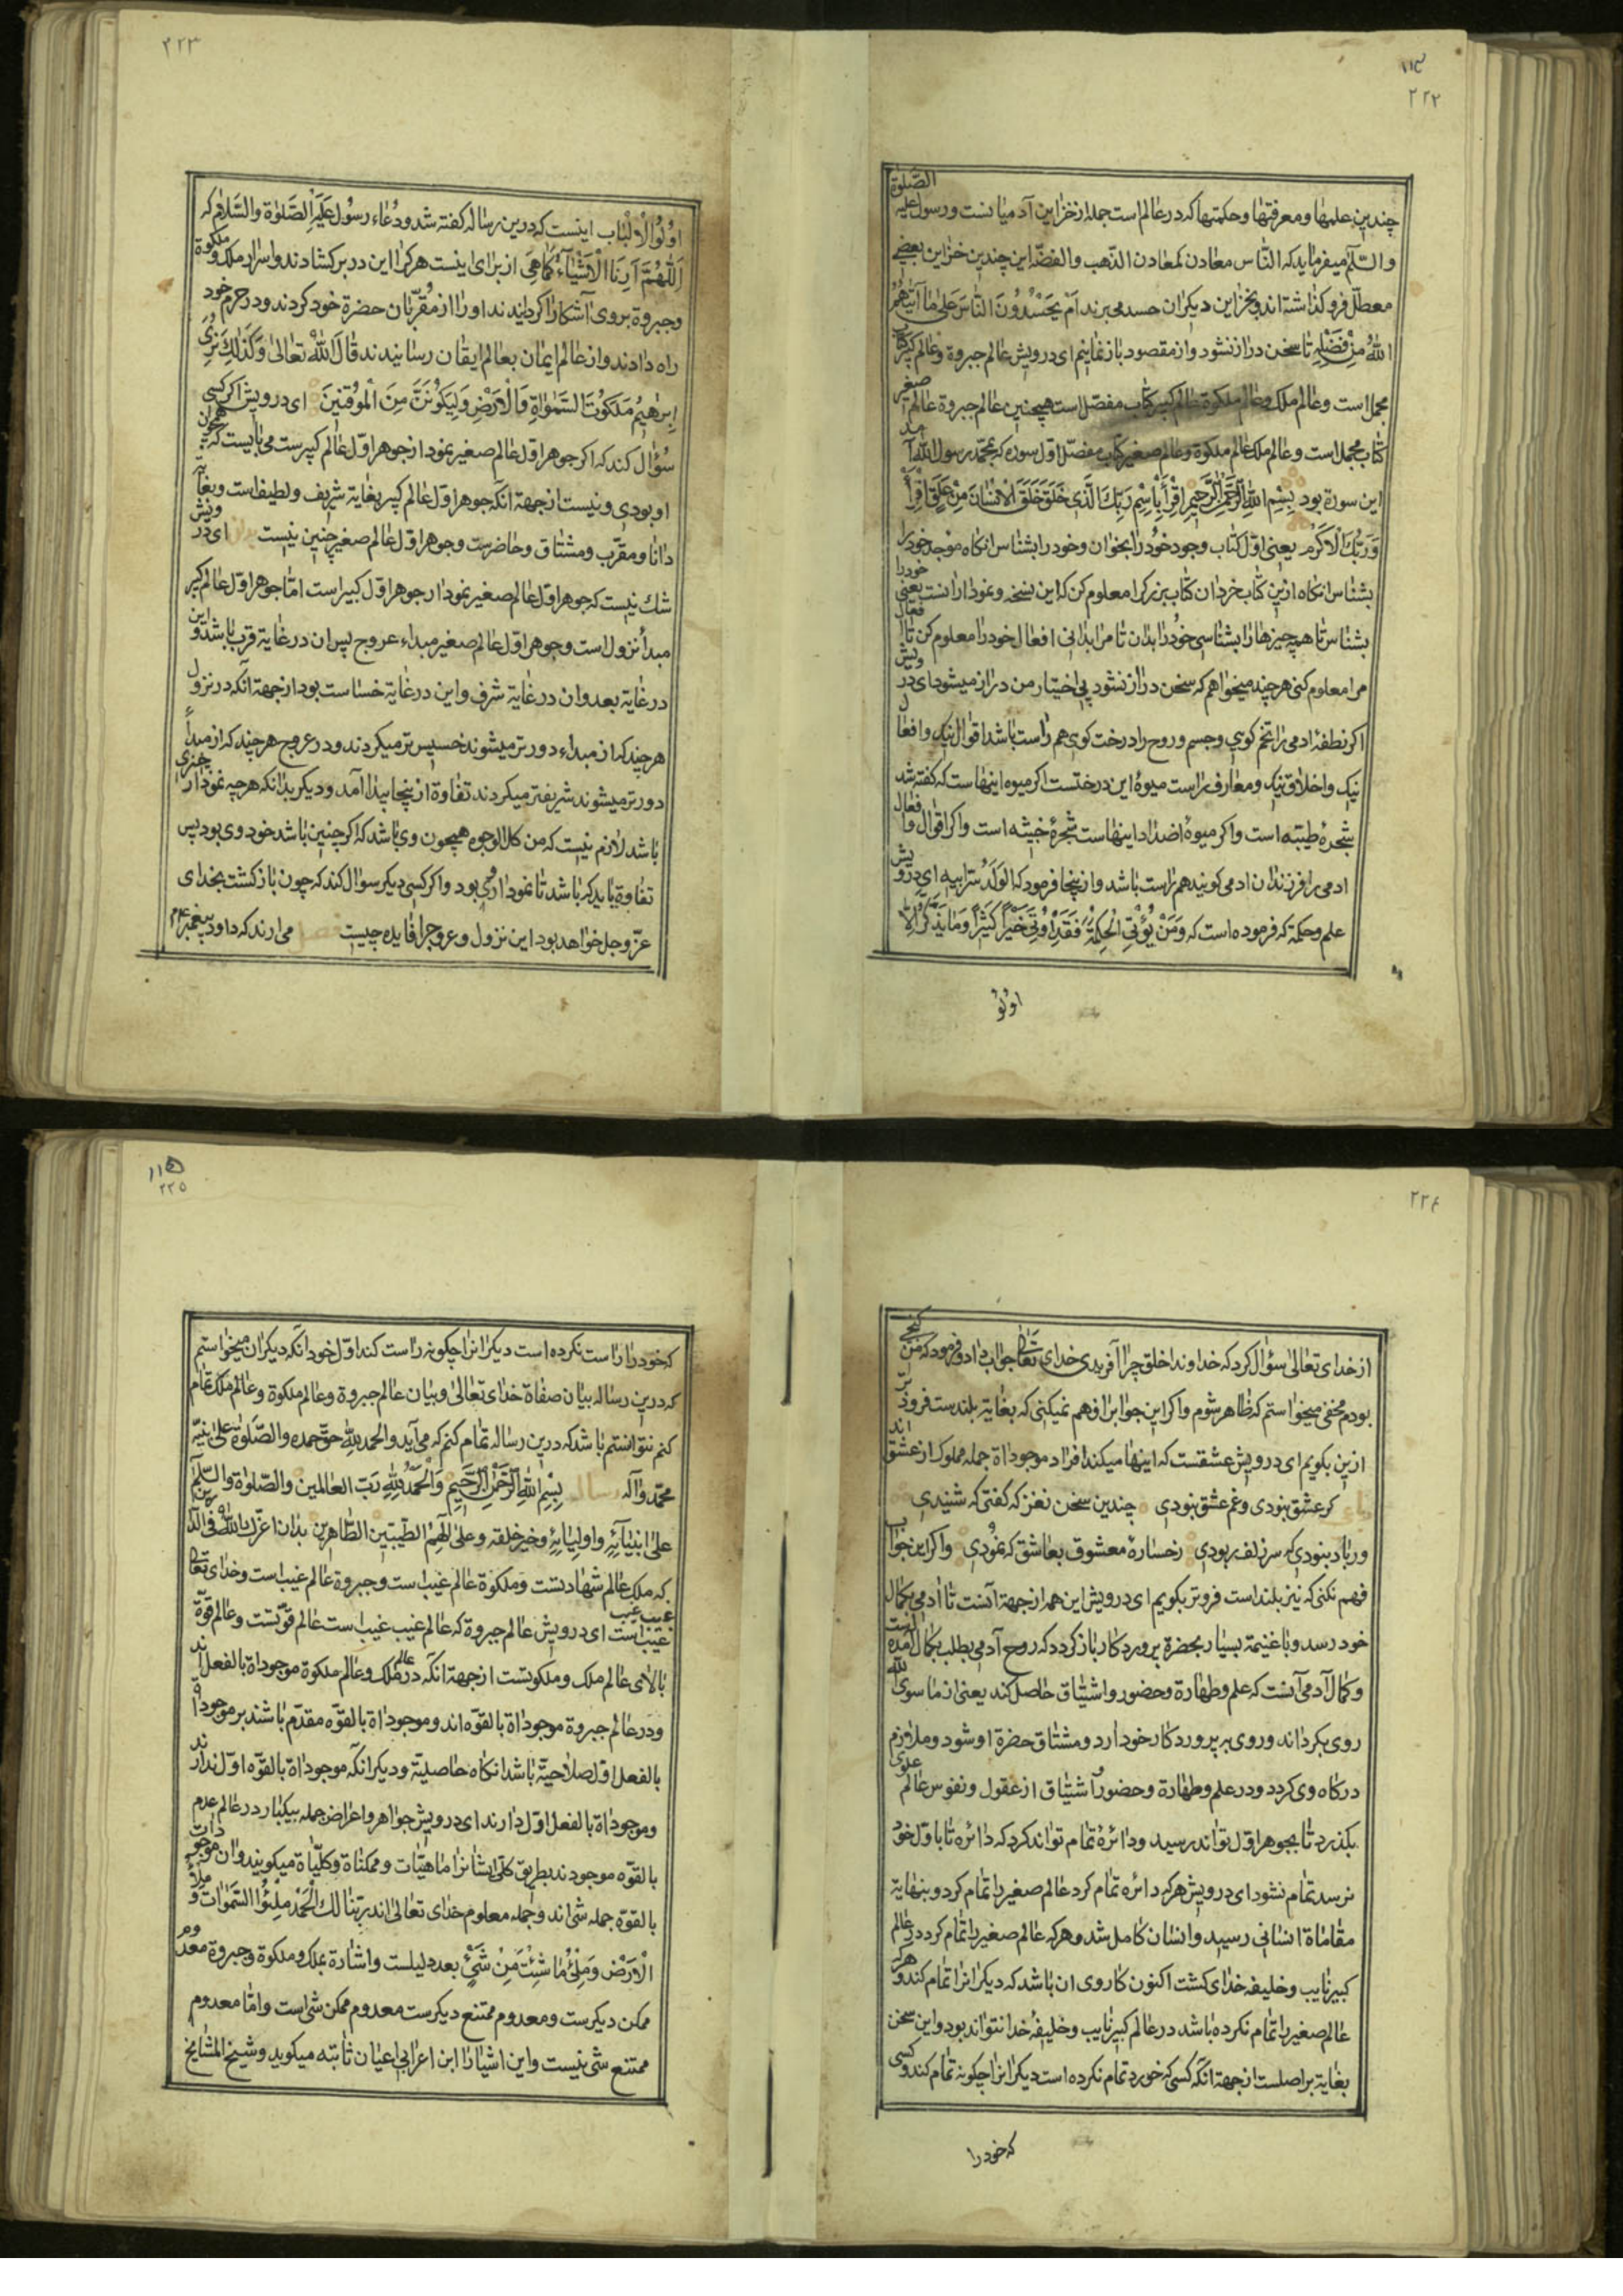 ۲۲۲
چندین علمها و معرفتها و حکمتها که در عالم است جمله از خزاین آدمیانست و رسول علیه الصّلوة
والسّلم میفرماید که النّاس معادن کمعادن الذّهب والفضّه این چندین خزاین بعضی
معطلّ فرو کذاشته اند و بخزاین دیکران حسد می برند اَمْ یَحْسُدُونَ النَّاسَ عَلیٰ مَا آتَیٰهُمُ
اللهُ مِنْ فَضْلِهِ تا سخن دراز نشود و از مقصود باز نمانیم ای درویش عالم جبروة و عالم کبیر کتاب
مجمل است و عالم ملک و عالم ملکوة عالم کبیر کتاب مفصّل است همچنین عالم جبروة عالم صغیر
کتاب مجمل است و عالم ملک عالم ملکوة و عالم صغیر کتاب مفصّل اوّل سوره که بمحمّد رسول الله آمد
این سورة بود بِسْمِ اللهِ الرَّحْمٰنِ الرَّحِیمِ اِقْرَأْ بِاسْمِ رَبِّكَ الَّذِی خَلَقَ خَلَقَ الْاِنْسَانَ مِنْ عَلَقٍ اِقْرَأْ
وَرَبُّكَ الْاَکْرَمُ یعنی اوّل کتاب وجود خود را بخوان و خود را بشناس انکاه موجد خود را
بشناس انکاه ازین کتاب خرد ان کتاب بزرک را معلوم کن که این نسخه و نمودار انست یعنی خود را
بشناس تا همه چیزها را بشناسی خود را بدان تا مرا بدانی افعال خود را معلوم کن تا افعال
مرا معلوم کنی هر چند میخواهم که سخن دراز نشود بی اختیار من دراز میشود ای درویش
اکر نطفهٔ ادمی را تخم کویی و جسم و روح را درخت کویی هم راست باشد اقوال نیک و افعال
نیک و اخلاق نیک و معارف راست میوهٔ این درختست اکر میوه اینهاست که کفته شد
شجرهٔ طیبّه است و اکر میوهٔ اضداد اینهاست شجرهٔ خبیثه است و اکر اقوال و افعال
ادمی را فرزندان ادمی کویند هم راست باشد و از ینجا فرمود که الولد سرّ ابیه ای درویش
علم و حکمة که فرموده است که وَمَنْ یُؤْتَی الْحِکْمَةَ فَقَدْ اُوتِیَ خَیْراً کَثِیراً وَمَا یَذَّکَّرُ اِلَّا
اولُو
۲۲۳
اُولُو الْاَلْبَاب اینست که درین رساله کفته شد و دُعاء رسول عَلَیْهِ الصَّلوٰة والسَّلام که
اَللّٰهُمَّ اَرِنَا الْاَشْیَاءَ کَمَا هِیَ از برای اینست هر کرا این در بر کشادند و اسرار ملک و ملکوة
و جبروة بر وی آشکارا کردانیدند او را از مقرّبان حضرة خود کردند و در حرم خود
راه دادند و از عالم ایمان بعالم ایقان رسانیدند قالَ اللهُ تعالیٰ وَکَذٰلِكَ نُرِی
اِبرٰهیمَ مَلَکُوتَ السَّمٰوَاةِ وَالْاَرْضِ وَلِیَکُونَنَّ مِنَ الْمُوقِنِینَ ای درویش اکر کسی
سؤال کند که اکر جوهر اوّل عالم صغیر نمودار جوهر اوّل عالم کبیرست می بایست که همچون
او بودی و نیست از جهة انکه جوهر اوّل عالم کبیر بغایة شریف و لطیف است و بغایة
دانا و مقرّب و مشتاق و حاضرست و جوهر اوّل عالم صغیر چنین نیست ای درویش
شك نیست که جوهر اوّل عالم صغیر نمودار جوهر اوّل کبیر است امّا جوهر اوّل عالم کبیر
مبدأ نزول است و جوهر اوّل عالم صغیر مبداء عروج پس ان در غایة قرب باشد و این
در غایة بعد و ان در غایة شرف و این در غایة خساست بود از جهة آنکه در نزول
هر چند که از مبداء دورتر میشوند خسیس تر میکردند و در عروج هر چند که از مبدأ
دورتر میشوند شریفتر میکردند تفاوة از ینجا پیدا آمد و دیکر بدانکه هر چه نمودار چیزی
باشد لازم نیست که من کلّ الوجوه همچون وی باشد که اکر چنین باشد خود وی بود پس
تفاوة باید که باشد تا نمودار وی بود و اکر کسی دیکر سوال کند که چون باز کشت بخدای
عزّ و جلّ خواهد بود این نزول و عروج را فایده چیست می ارند که داود پیغمبر
۲۲٤
از خدای تعالیٰ سؤال کرد که خداوندا خلق چرا آفریدی خدای تعالی جواب داد و فرمود که من کنجی
بودم مخفی میخواستم که ظاهر شوم و اکر این جواب را فهم نمیکنی که بغایة بلندست فروتر
ازین بکویم ای درویش عشقست که اینها میکند افراد موجوداة جمله مملو از عشق اند
کر عشق نبودی و غم عشق نبودی چندین سخن نغز که کفتی که شنیدی
ور باد نبودی که سر زلف ربودی رخسارهٔ معشوق بعاشق که نمودی و اکر این جواب
فهم نکنی که نیز بلند است فروتر بکویم ای درویش این همه از جهة آنست تا ادمی بکمال
خود رسد و با غنیمة بسیار بحضرة پروردکار باز کردد که روح آدمی بطلب کمال آمده است
و کمال آدمی آنست که علم و طهارة و حضور و اشتیاق حاصل کند یعنی از ما سوی الله
روی بکرداند و روی بر پروردکار خود ارد و مشتاق حضرة او شود و ملازم
درکاه وی کردد و در علم و طهارة و حضور و اشتیاق از عقول و نفوس عالم علوی
بکذرد تا بجوهر اوّل تواند رسید و دائرهٔ تمام تواند کرد که دائره تا باوّل خود
نرسد تمام نشود ای درویش هر که دائره تمام کرد عالم صغیر را تمام کرد و بنهایة
مقاماة انسانی رسید و انسان کامل شد و هر که عالم صغیر را تمام کرد در عالم
کبیر نایب و خلیفه خدای کشت اکنون کار وی ان باشد که دیکرانرا تمام کند و هر که
عالم صغیر را تمام نکرده باشد در عالم کبیر نایب و خلیفهٔ خدا نتواند بود و این سخن
بغایة بر اصلست از جهة انکه کسی که خود را تمام نکرده است دیکرانرا چکونه تمام کند و کسی
که خود را
۱۱۵
۲۲۵
که خود را راست نکرده است دیکرانرا چکونه راست کند اوّل خود انکه دیکران میخواستم
که درین رساله بیان صفاة خدای تعالیٰ و بیان عالم جبروة و عالم ملکوة و عالم ملک تمام
کنم نتوانستم باشد که درین رساله تمام کنم که می آید والحمد لله حقّ حمده والصّلوة علیٰ نبیّه
محمّد وآله رساله بِسْمِ اللهِ الرَّحْمٰنِ الرَّحِیمِ وَالْحَمْدُ لِلّٰهِ رَبّ العالمین والصّلوٰة والسّلم
علیٰ انبیآئِهِ واولیایِهِ وخیر خلقه وعلیٰ آلهم الطّیّبین الطّاهرین بدان اعزّك اللهُ فی الدّارین
که ملك عالم شهادتست و ملکوة عالم غیب است و جبروة عالم غیب است و خدای تعالی
غیب غیب غیب است ای درویش عالم جبروة که عالم غیب غیب است عالم قوّتست و عالم قوّة
بالای عالم ملک و ملکوتست از جهة انکه در عالم ملک و عالم ملکوة موجوداة بالفعل اند
و در عالم جبروة موجوداة بالقوّه اند و موجوداة بالقوّه مقدّم باشند بر موجوداة
بالفعل اوّل صلاحیّة باشد انکاه حاصلیّة و دیکر آنکه موجوداة بالقوّه اوّل ندارند
و موجوداة بالفعل اوّل دارند ای درویش جواهر و اعراض جمله بیکبار در عالم عدم
بالقوّه موجودند بطریق کلّی ایشانرا ماهیّات و ممکناة و کلیّاة میکویند و ان موجودات
بالقوّه جمله شئ اند و جمله معلوم خدای تعالیٰ اند ربّنا لك الْحَمْدُ مِلْؤُ السَّمٰوَات و ملأ
الْاَرْض وَمِلْئُ مَا شِئْتَ مِنْ شَیْءٍ بعد دلیلست و اشارة بملك و ملکوة و جبروة معدوم
ممکن دیکرست و معدوم ممتنع دیکرست معدوم ممکن شئ است و امّا معدوم
ممتنع شئ نیست و این اشیا را ابن اعرابی اعیان ثابته میکوید و شیخ المشایخ